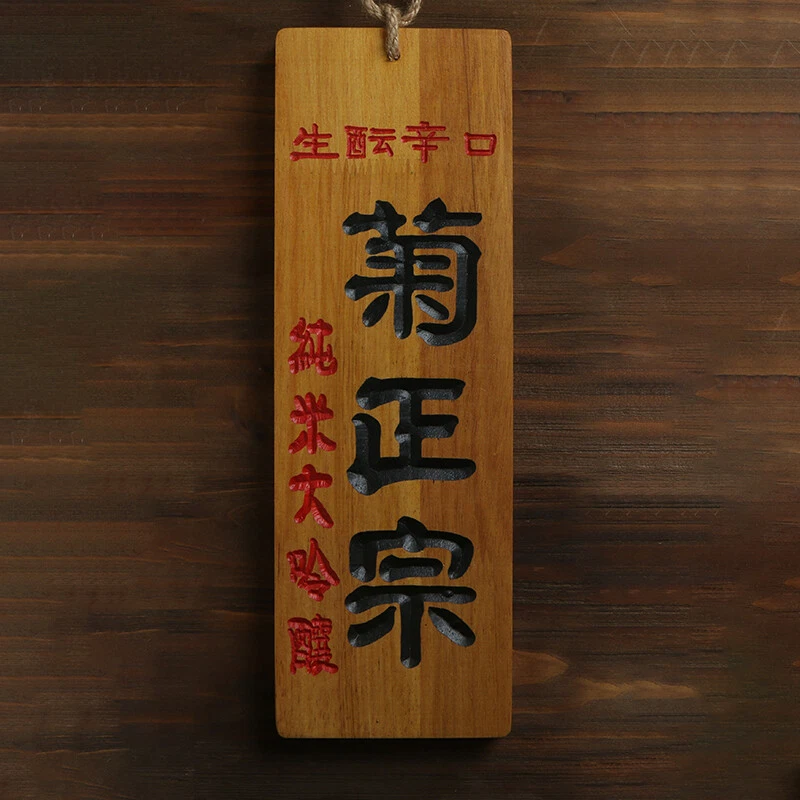 生酛辛口
菊正宗
純米大吟醸